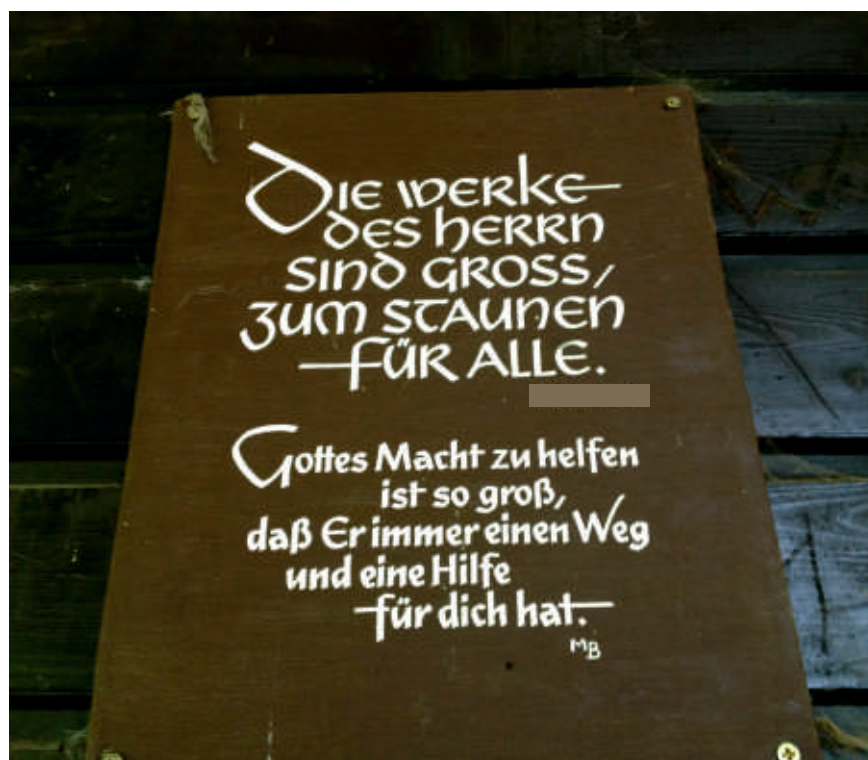 Die Werke
des Herrn
sind gross,
zum Staunen
für alle.
Gottes Macht zu helfen
ist so groß,
daß Er immer einen Weg
und eine Hilfe
für dich hat.
MB